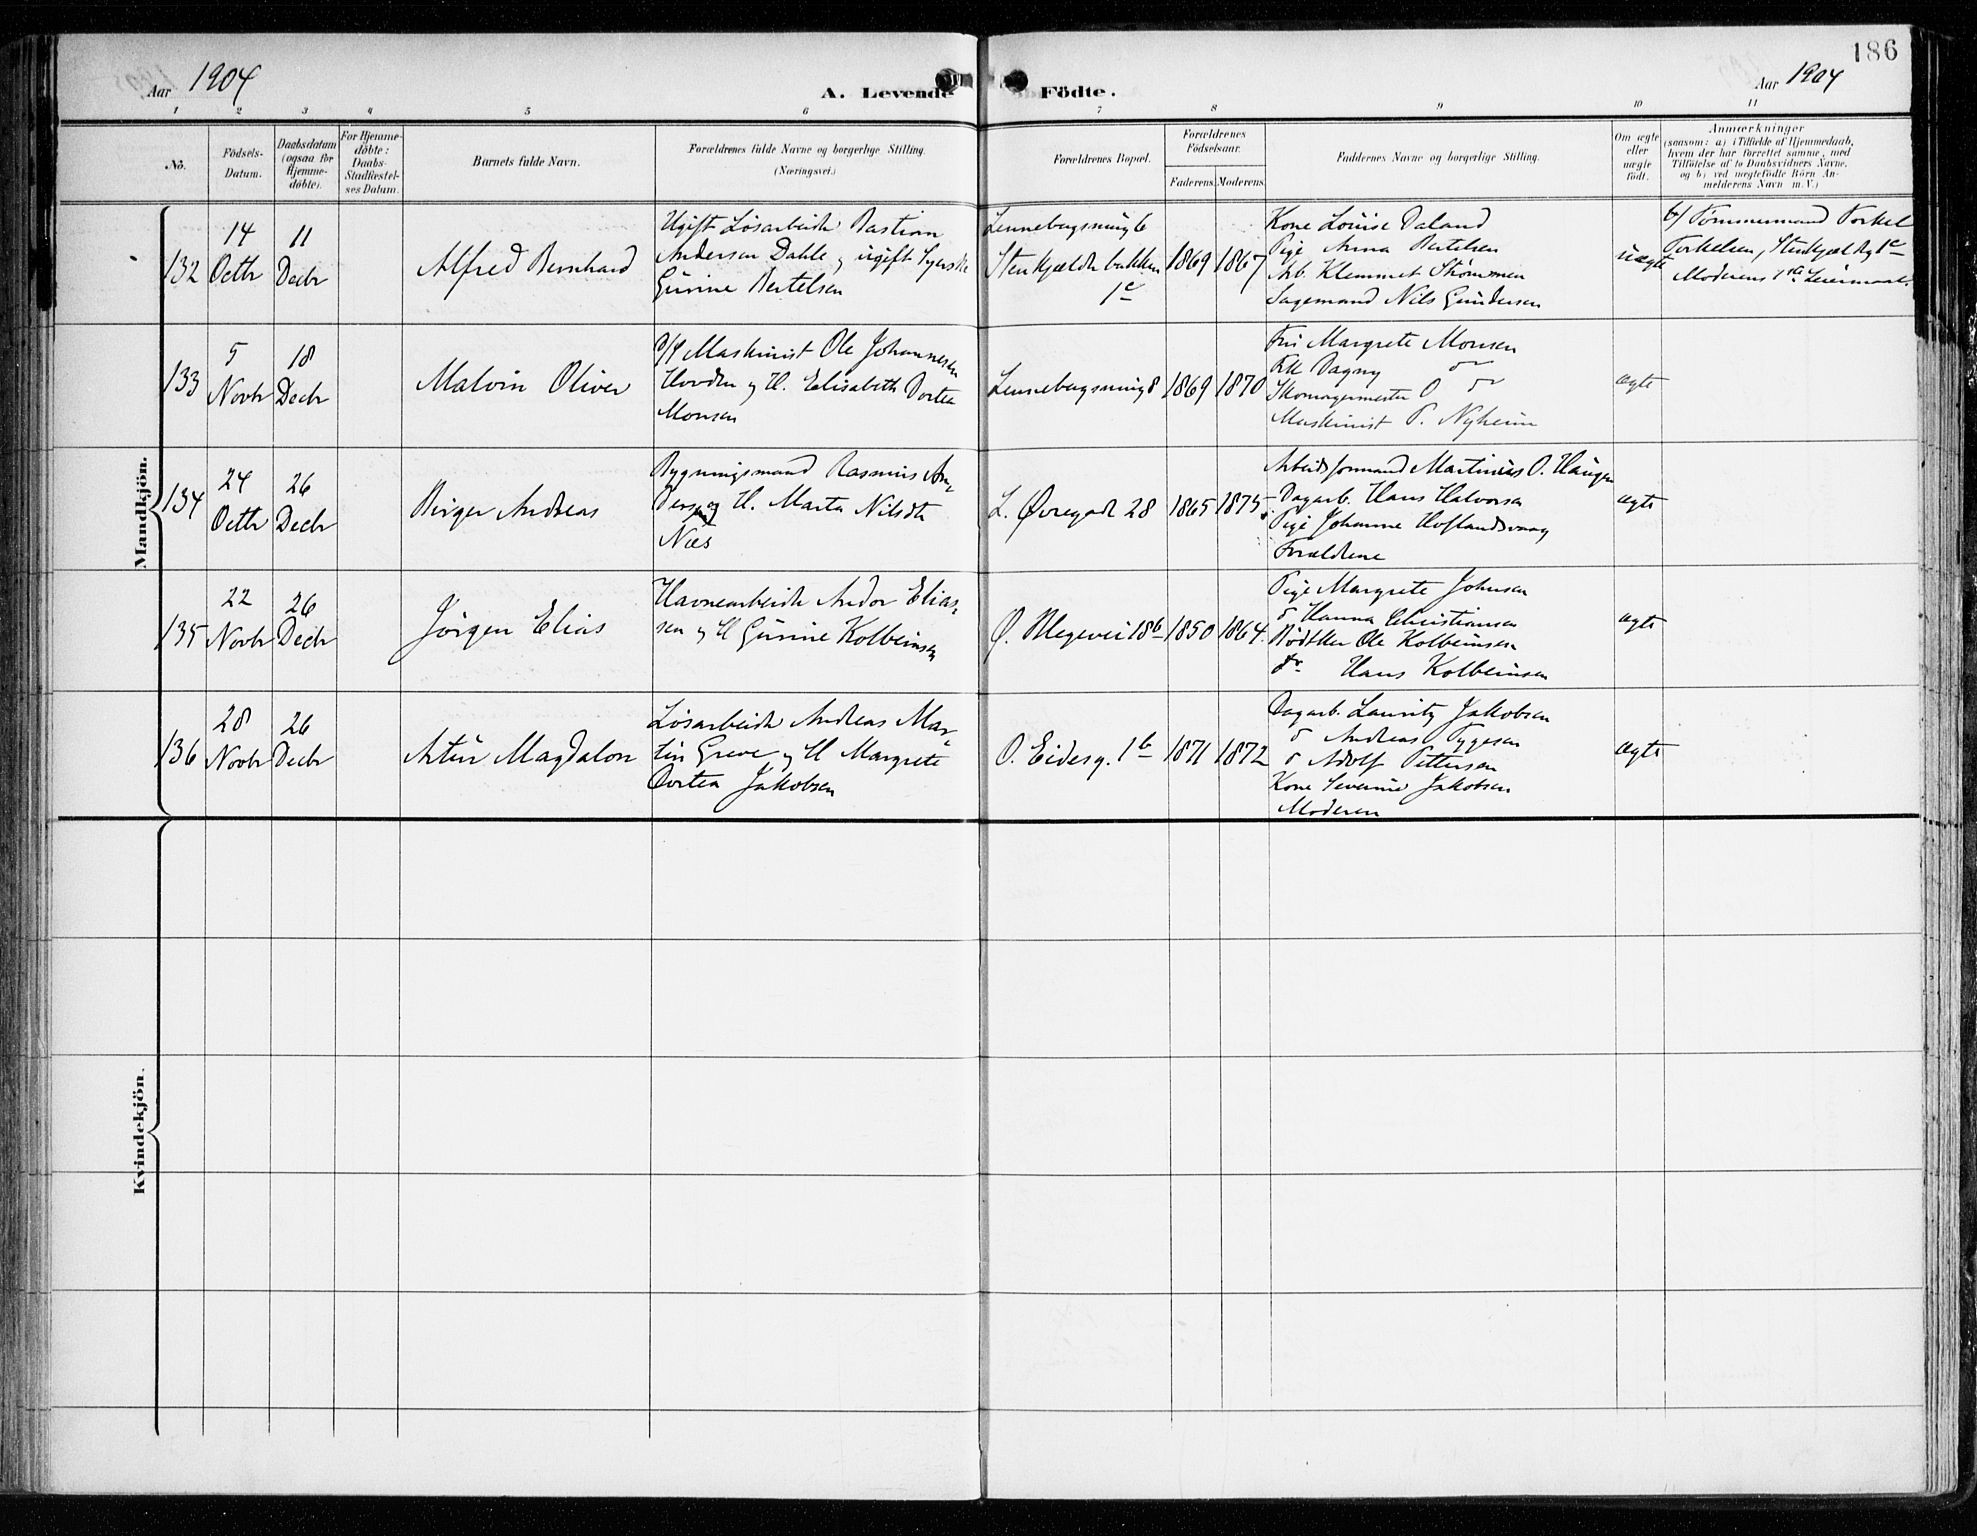 186
Aar 1904
A. Levende Födte.
Aar 1904
1 2 3 4 5 6 7 8 9 10 11
No.
Födsels-
Datum.
Daabsdatum
(ogsaa for
Hjemme-
döbte).
For Hjemme-
döbte:
Daabs-
Stadfæstel-
ses Datum.
Barnets fulde Navn.
Forældrenes fulde Navne og borgerlige Stilling.
(Næringsvei.)
Forældrenes Bopæl.
Forældrenes
Födselsaar.
Faderens.
Moderens.
Faddernes Navne og borgerlige Stilling.
Om ægte
eller
uægte
födt.
Anmærkninger
(saasom: a) i Tilfælde af Hjemmedaab,
hvem der har forrettet samme, med
Tilföielse af to Daabsvidners Navne,
og b) ved uægtefödte Börn An-
melderens Navn m. V.)
Mandkjön.
132
14
Octbr
11
Decbr
Alfred Bernhard
Ugift Løsarbeider Bastian
Andersen Dahle og ugift Syerske
Gurine Bertelsen
Stenkjælderbakken
1c
1869
1867
Kone Louise Daland
Pige Anna Bertelsen
Arb. Klemmet Strømmen
Sagemand Nils Gundersen
uægte
b/ Tømmermand Torkel
Torkelsen, Stenkjælderg 1c
Moderens 1ste Leiermaal.
133
5
Novbr
18
Decbr
Malvin Oliver
Maskinist Ole Johannesen
Hovden og H. Elisabeth Dortea
Monsen
1869
1870
Fru Margrete Monsen
Frk Dagny do
Skomagermester O do
Maskinist P. Nyheim
ægte
134
24
Octbr
26
Decbr
Birger Andreas
Bygningsmand Rasmus An-
og H. Marta Nilsdtr
Næs
L. Øvregade 28
1865
1875
Arbeidsformand Martinius O. Haugen
Dagarb. Hans Halvorsen
Pige Johanne Hoflandsvaag
Forældrene
ægte
135
22
Novbr
26
Decbr
Jörgen Elias
Havnearbeider Andor Elias-
sen og H Gurine Kolbeinsen
Ø. Blegevei 18b
1850
1864
Pige Margrete Johnsen
do Hanna Christiansen
Bødker Ole Kolbeinsen
do Hans Kolbeinsen
ægte
136
28
Novbr
26
Decbr
Artur Magdalon
Løsarbeider Andreas Mar-
tin Greve og H Margrete
Dortea Jakobsen
O. Eidesg. 1b
1871
1872
Dagarb. Lauritz Jakobsen
do Andreas Tygesen
do Adolf Pettersen
Kone Severine Jakobsen
Moderen
ægte
Kvindekjön.